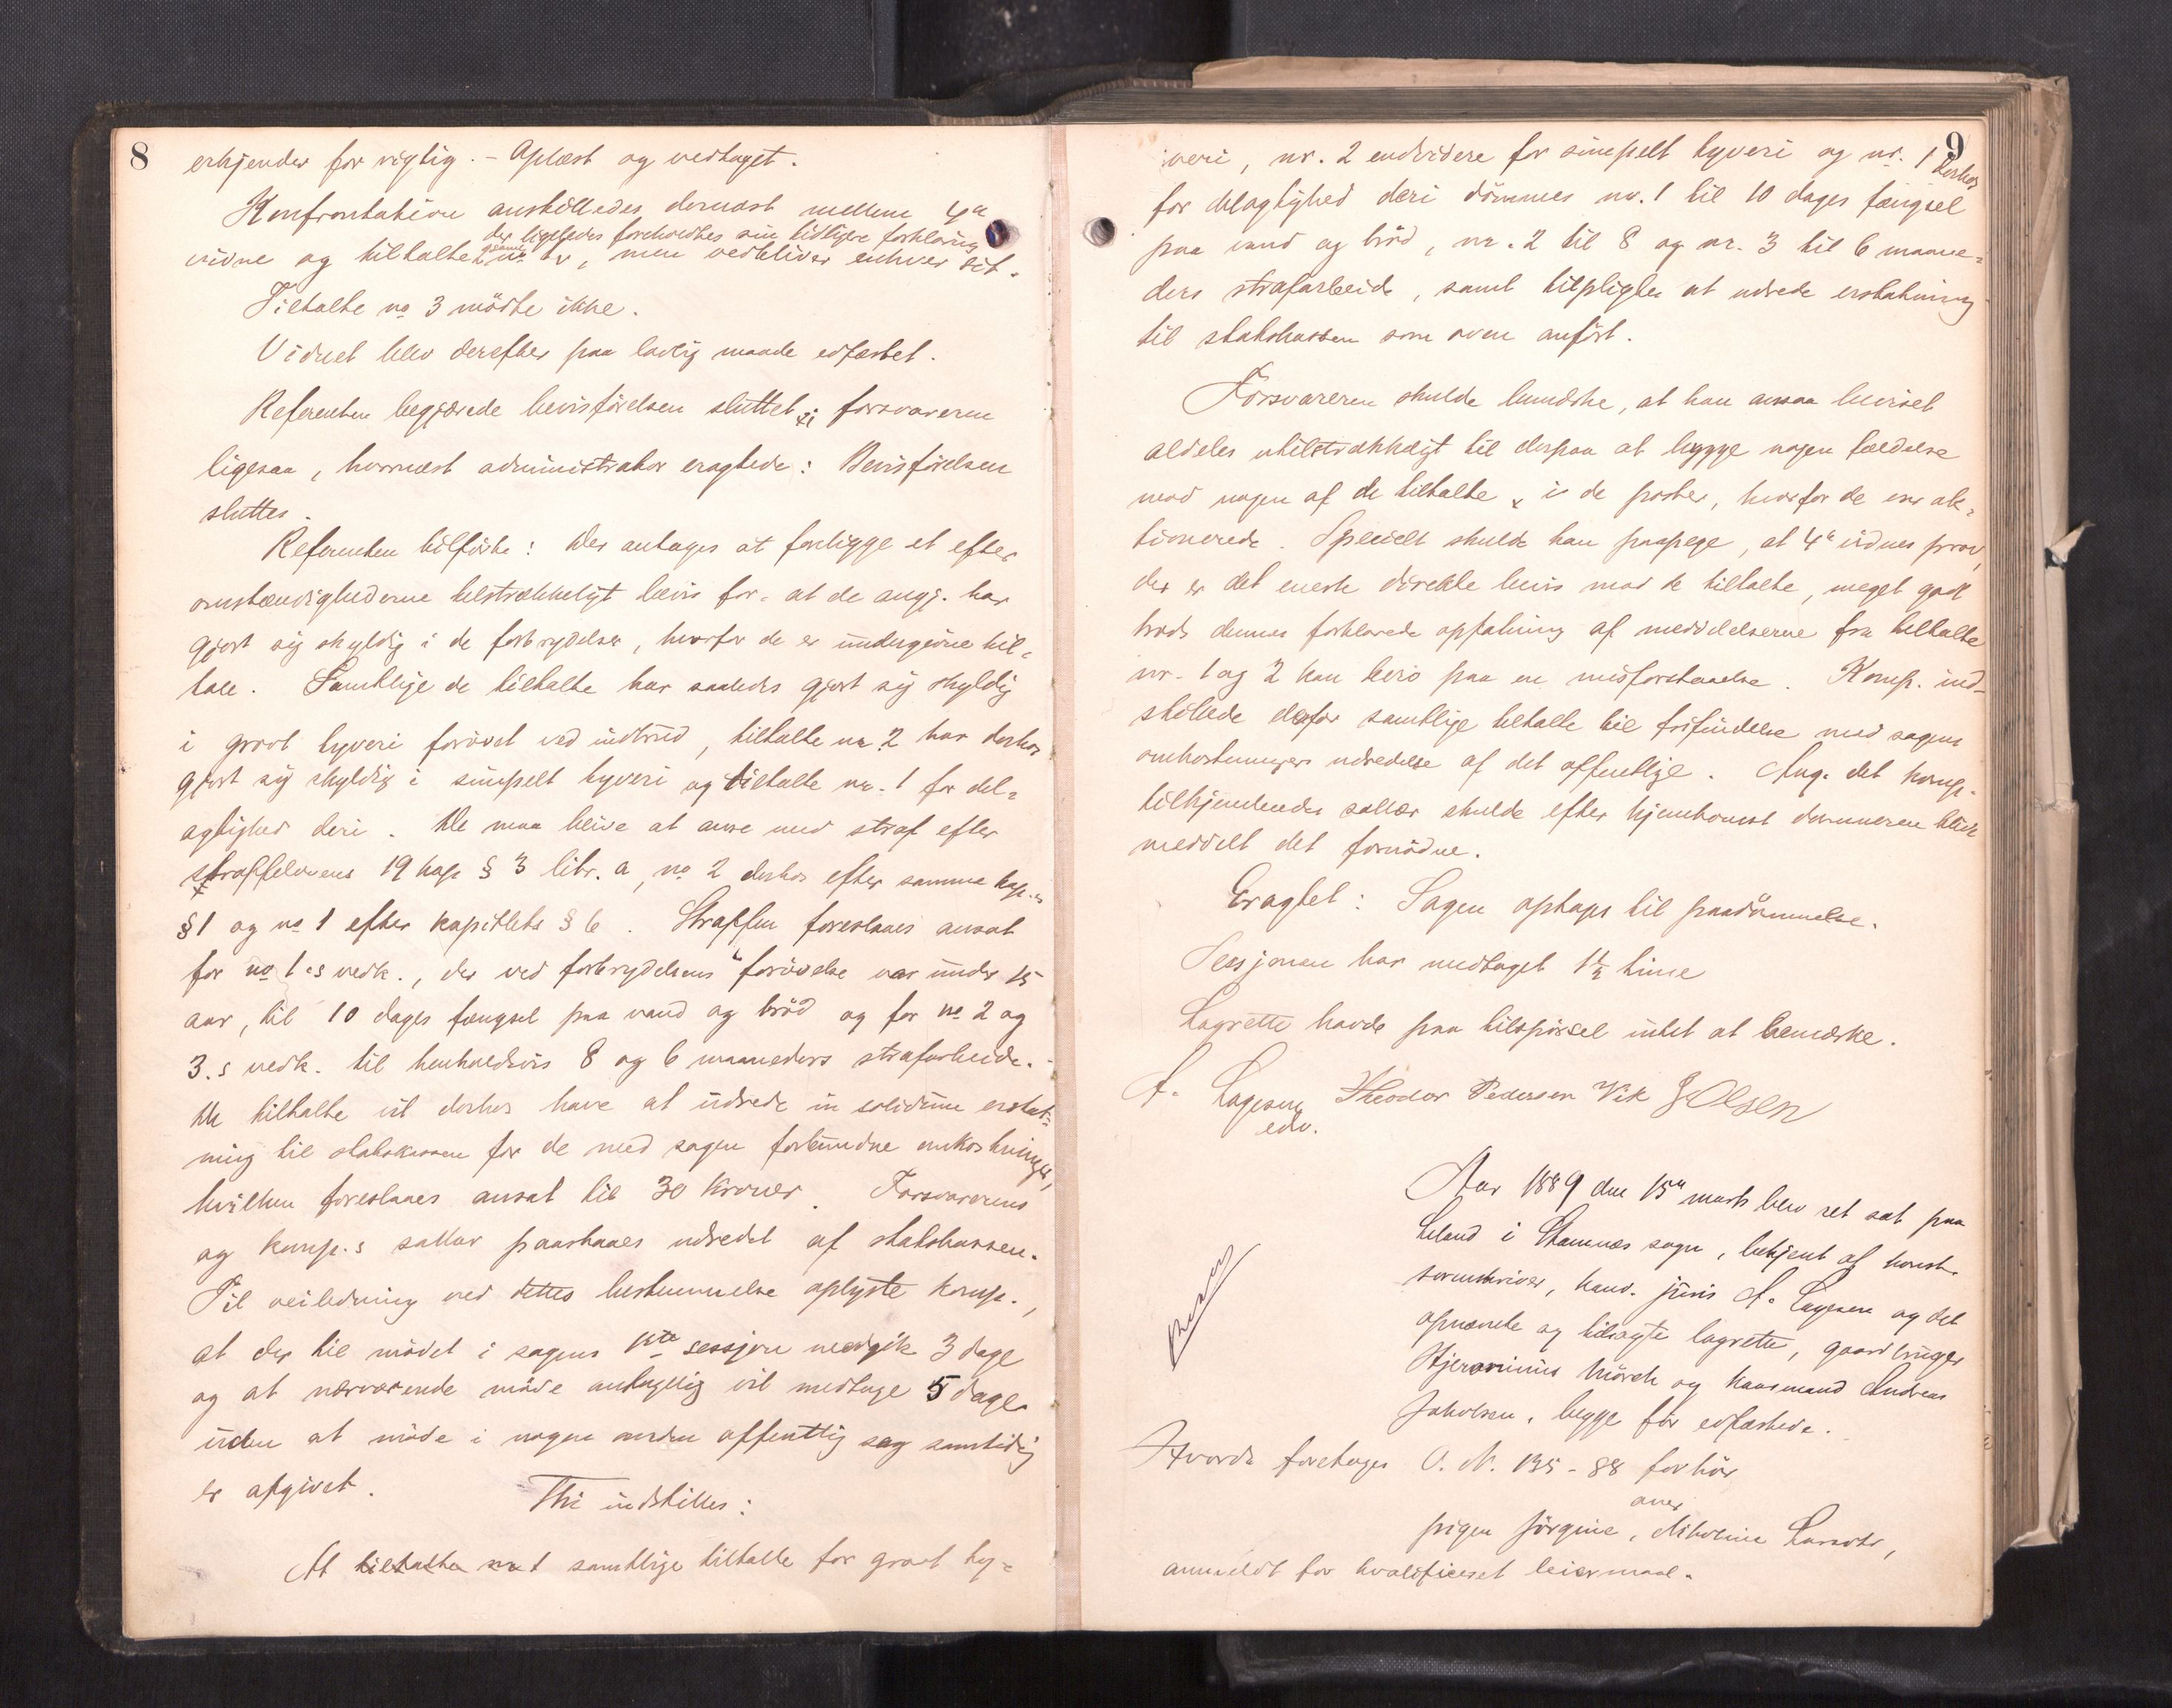 8
erkjender for rigtig. – Oplæst og vedtaget.
Konfrontation anstilledes dernæst mellem 4de
der ligeledes foreholdtes sin tidligere forklaring
vidne og tiltalte no 2, men vedbliver enhver sit.
Tiltalte no 3 mödte ikke.
Vidnet blev derefter paa lovlig maade edfæstet.
Referenten begjærede bevisförelsen sluttet; forsvareren
ligesaa, hvornæst administrator eragtede: Bevisförelsen
sluttes.
Referenten tilförte: Der antages at foreligge et efter
omstændighederne tilstrækkeligt bevis for, at de angj. har
gjort sig skyldig i de forbrydelser, hvorfor de er undergivne til-
tale. Samtlige de tiltalte har saaledes gjort sig skyldig
i grovt tyveri forövet ved indbrud, tiltalte nr. 2 har derhos
gjort sig skyldig i simpelt tyveri og tiltalte nr. 1 for del-
agtighed deri. De maa blive at anse med straf efter
straffelovens 19 kap § 3 litr. a, no 2 derhos efter samme kap.s
§ 1 og no 1 efter kapitlets § 6. Straffen foreslaaes ansat
for no 1.s vedk., der ved forbrydelsens forövelse var under 15
aar, til 10 dages fængsel paa vand og bröd og for no 2 og
3.s vedk. til henholdsvis 8 og 6 maaneders strafarbeide. –
De tiltalte vil derhos have at udrede in solidum erstat-
ning til statskassen for de med sagen forbundne omkostninger,
hvilken foreslaaes ansat til 30 kroner. Forsvarerens
og komp.s sallær paastaaes udredet af statskassen.
Til veiledning ved dettes bestemmelse oplyste komp.,
at der til mödet i sagens 1ste sessjon medgik 3 dage
og at nærværende möde antagelig vil medtage 5 dage
uden at möde i nogen anden offentlig sag samtidig
er afgivet.
Thi indstilles:
At tiltalte nr 1 samtlige tiltalte for grovt ty-
9
veri, nr. 2 endvidere for simpelt tyveri og nr. 1 derhos
for delagtighed deri dömmes nr. 1 til 10 dages fængsel
paa vand og bröd, nr. 2 til 8 og nr. 3 til 6 maane-
ders strafarbeide, samt tilpligtes at udrede erstatning
til statskassen som oven anfört.
Forsvareren skulde bemærke, at han ansaa beviset
aldeles utilstrækkeligt til derpaa at bygge nogen fældelse
mod nogen af de tiltalte i de poster, hvorfor de ere ak-
tionerede. Specielt skulde han paapege, at 4de vidnes prov,
der er det eneste direkte bevis mod de tiltalte, meget godt
trods dennes forklarede opfatning af meddelelserne fra tiltalte
nr. 1 og 2 kan bero paa en misforstaaelse. Komp. ind-
stillede derfor samtlige tiltalte til frifindelse med sagens
omkostningers udredelse af det offentlige. Ang. det komp.
tilkjendendes sallær skulde efter hjemkomst dommeren blive
meddelt det fornödne.
Eragtet: Sagen optages til paadömmelse.
Sessjonen har medtaget 1½ time
Lagrette havde paa tilspörsel intet at bemærke.
A. Lagesen Theodor Pedersen Vik J Olsen
edv.
Aar 1889 den 15de marts blev ret sat paa
Leland i Stamnæs sogn, betjent af konst.
sorenskriver, kand. juris A. Lagesen og det
opnævnte og tilsagte lagrette, gaardbruger
Hjeronimus Mörch og kaarmand Andreas
Jakobsen, begge för edfæstede.
Hvorda foretages O. N. 135 – 88 forhör
over
pigen Jörgine Nikoline Larsdtr,
anmeldt for kvalificeret leiermaal.